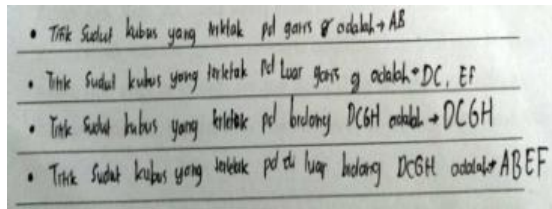 • Titik Sudut kubus yang terletak pd garis g adalah → AB
• Titik Sudut kubus yang terletak pd Luar garis g adalah → DC, EF
• Titik Sudut kubus yang terletak pd bidang DCGH adalah → DCGH
• Titik Sudut kubus yang terletak pd di luar bidang DCGH adalah → ABEF